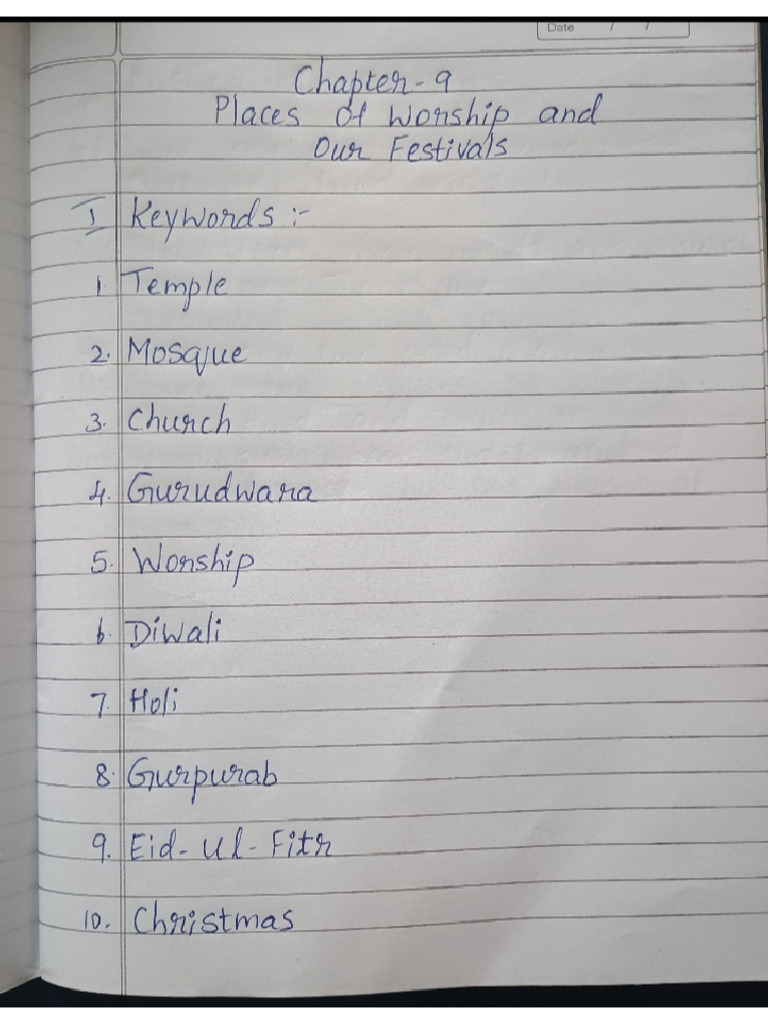 Date / /
Chapter-9
Places of Worship and
Our Festivals
I Keywords :-
1. Temple
2. Mosque
3. Church
4. Gurudwara
5. Worship
6. Diwali
7. Holi
8. Gurpurab
9. Eid-Ul-Fitr
10. Christmas